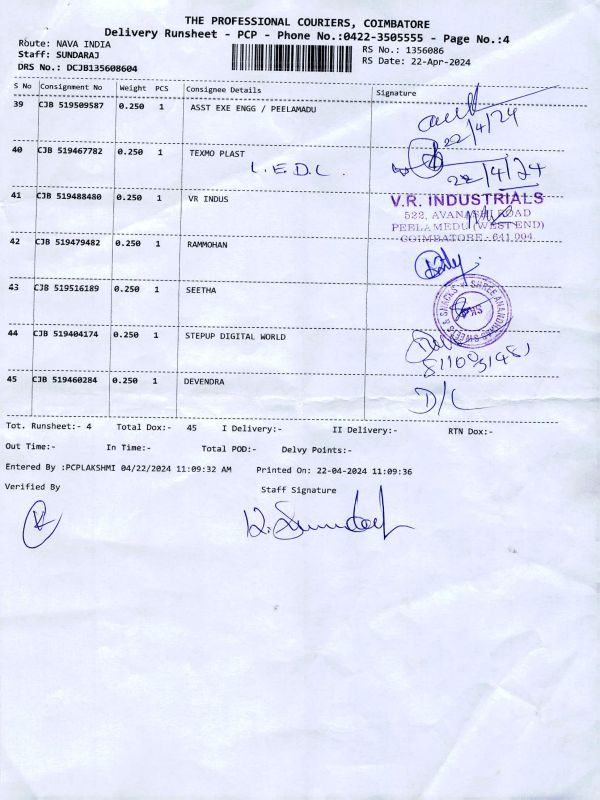 THE PROFESSIONAL COURIERS, COIMBATORE
Delivery Runsheet - PCP - Phone No.:0422-3505555 - Page No.:4
Route: NAVA INDIA RS No.: 1356086
Staff: SUNDARAJ RS Date: 22-Apr-2024
DRS No.: DCJB135608604
S No Consignment No Weight PCS Consignee Details Signature
39 CJB 519509587 0.250 1 ASST EXE ENGG / PEELAMADU
22/4/24
40 CJB 519467782 0.250 1 TEXMO PLAST
L.E.D.C. 22/4/24
41 CJB 519488480 0.250 1 VR INDUS V.R. INDUSTRIALS
522, AVANASHI ROAD
PEELAMEDU (WEST END)
COIMBATORE - 641 004
42 CJB 519479482 0.250 1 RAMMOHAN
43 CJB 519516189 0.250 1 SEETHA
44 CJB 519404174 0.250 1 STEPUP DIGITAL WORLD
45 CJB 519460284 0.250 1 DEVENDRA D/L
Tot. Runsheet:- 4 Total Dox:- 45 I Delivery:- II Delivery:- RTN Dox:-
Out Time:- In Time:- Total POD:- Delvy Points:-
Entered By :PCPLAKSHMI 04/22/2024 11:09:32 AM Printed On: 22-04-2024 11:09:36
Verified By Staff Signature